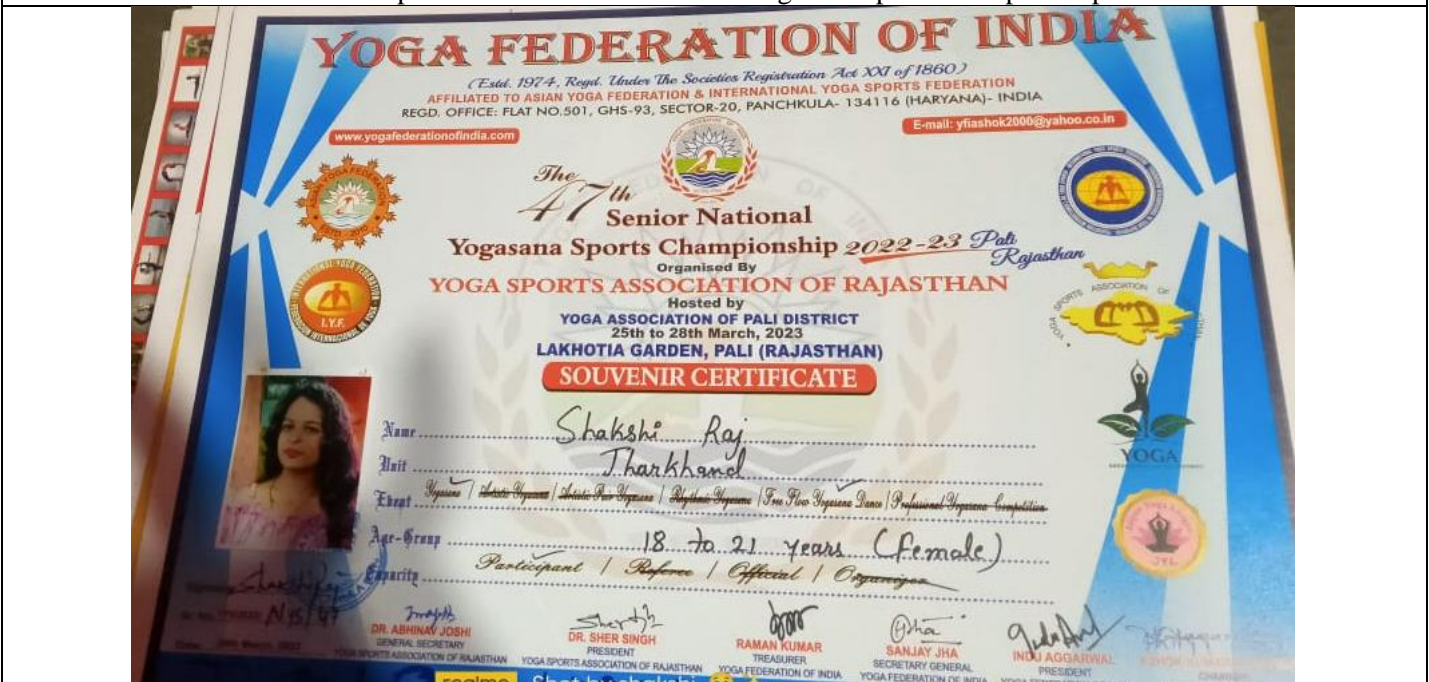 YOGA FEDERATION OF INDIA
(Estd. 1974, Regd. Under The Societies Registration Act XXI of 1860)
AFFILIATED TO ASIAN YOGA FEDERATION & INTERNATIONAL YOGA SPORTS FEDERATION
REGD. OFFICE: FLAT NO.501, GHS-93, SECTOR-20, PANCHKULA- 134116 (HARYANA)- INDIA
www.yogafederationofindia.com
E-mail: yfiashok2000@yahoo.co.in
The
47th
Senior National
Yogasana Sports Championship 2022-23 Pali
Rajasthan
Organised By
YOGA SPORTS ASSOCIATION OF RAJASTHAN
Hosted by
YOGA ASSOCIATION OF PALI DISTRICT
25th to 28th March, 2023
LAKHOTIA GARDEN, PALI (RAJASTHAN)
SOUVENIR CERTIFICATE
I.Y.F.
YOGA SPORTS ASSOCIATION OF
YOGA
JYL
Name Shakshi Raj
Unit Jharkhand
Event Yogasana / Artistic Yogasana / Artistic Pair Yogasana / Rhythmic Yogasana / Free Flow Yogasana Dance / Professional Yogasana Competition
Age-Group 18 to 21 years (Female)
Capacity Participant / Referee / Official / Organiser
DR. ABHINAV JOSHI
GENERAL SECRETARY
YOGA SPORTS ASSOCIATION OF RAJASTHAN
DR. SHER SINGH
PRESIDENT
YOGA SPORTS ASSOCIATION OF RAJASTHAN
RAMAN KUMAR
TREASURER
YOGA FEDERATION OF INDIA
SANJAY JHA
SECRETARY GENERAL
YOGA FEDERATION OF INDIA
INDU AGGARWAL
PRESIDENT
realme Shot by shakshi